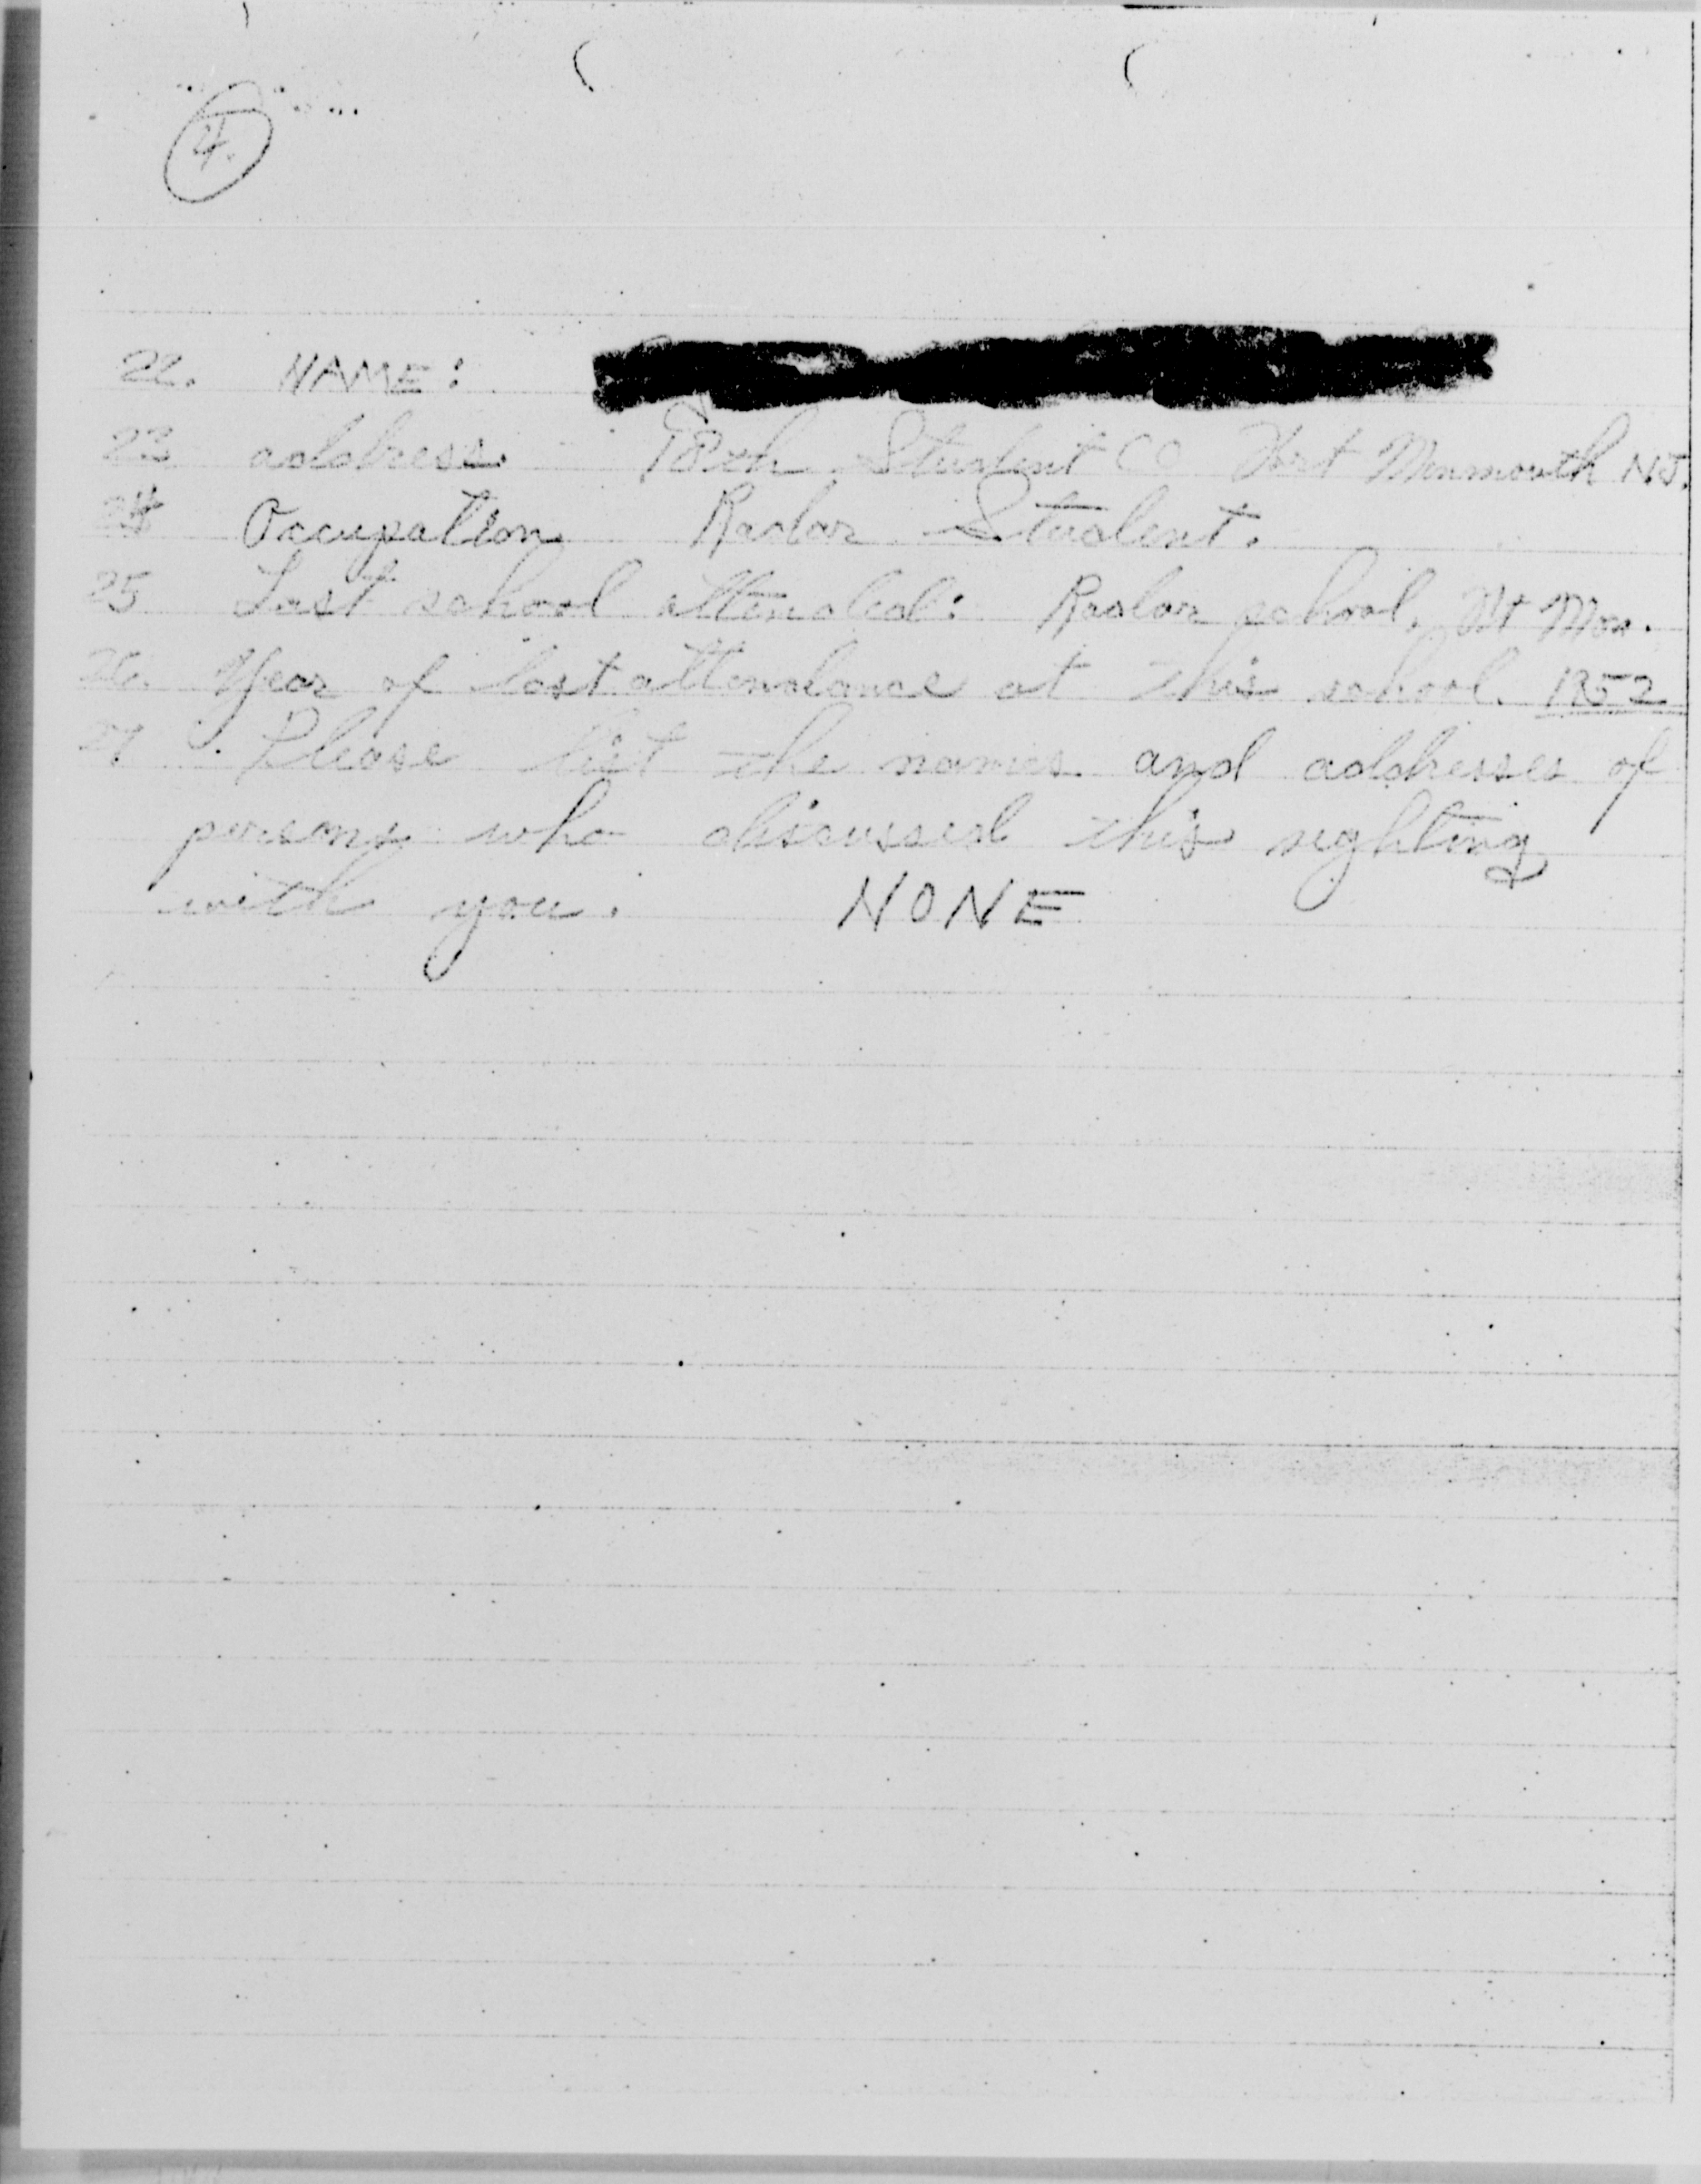 4.
22. NAME:
23 address. Student CO Fort Monmouth NJ.
24 Occupation Radar Student.
25 Last school attended: Radar school, Mon.
26. Year of last attendance at this school. 1952
27. Please list the names and addresses of
persons who discussed this sighting
with you. NONE